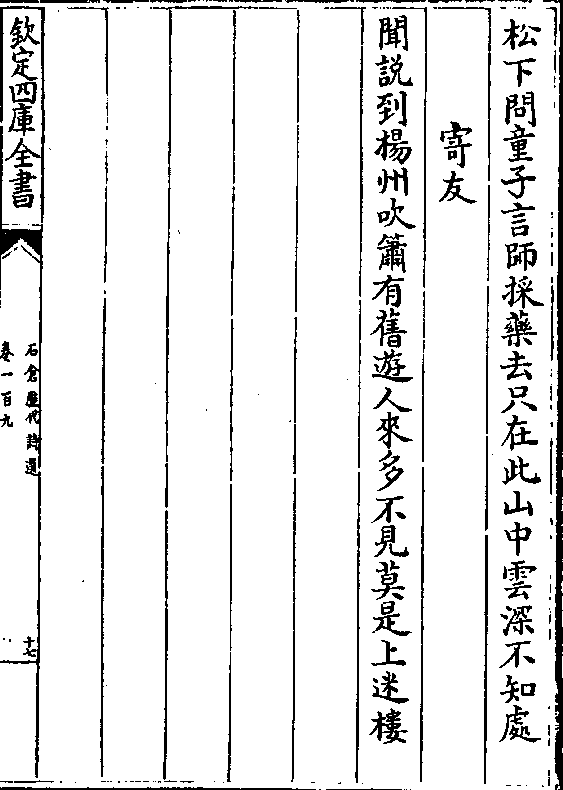 松下問童子言師採藥去只在此山中雲深不知處
寄友
聞說到楊州吹簫有舊遊人來多不見莫是上迷樓
欽定四庫全書
石倉歷代詩選
卷一百九
十七